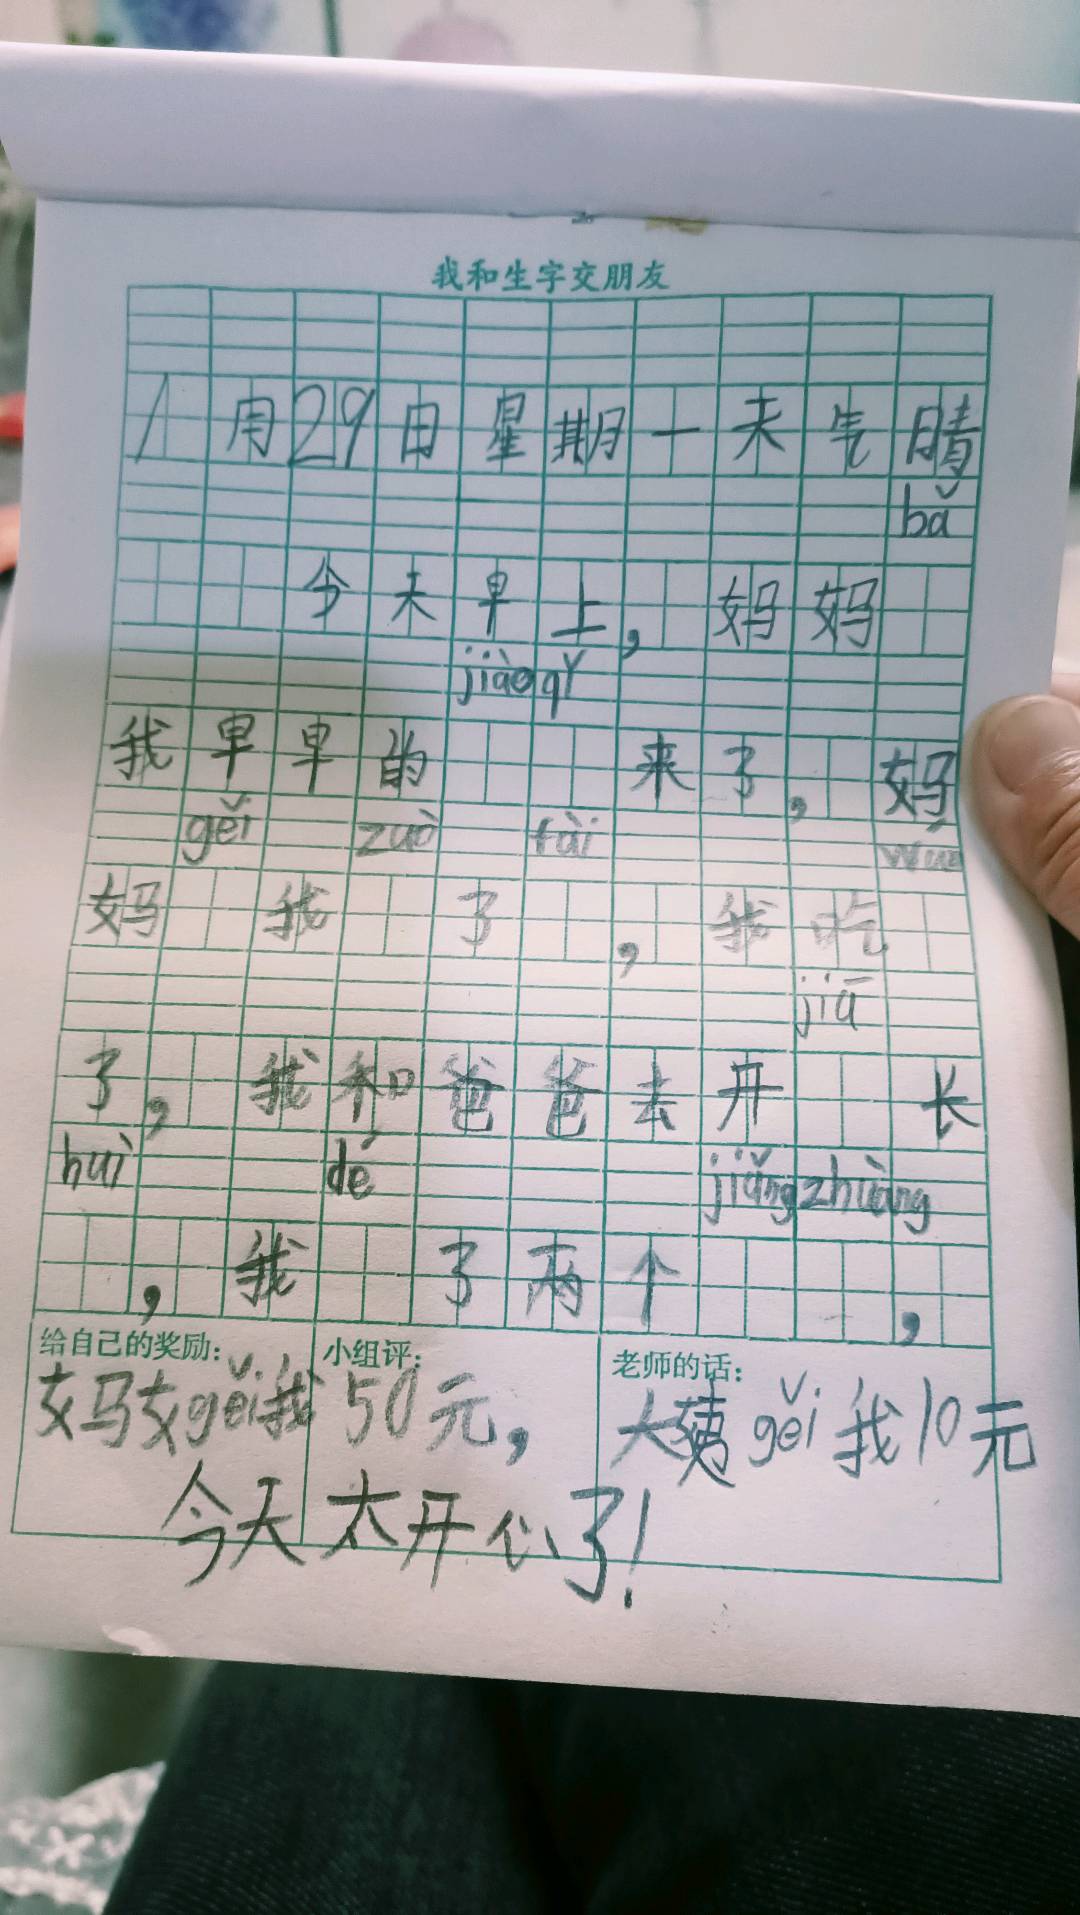 我和生字交朋友
1月29日星期一天气晴
bǎ
今天早上，妈妈
jiào qǐ
我早早的来了，妈
gěi zuò fài wúe
妈我了，我吃
jiā
了，我和爸爸去开长
huì dé jiǎng zhuàng
，我了两个，
给自己的奖励：
小组评：
老师的话：
女马女gěi我50元，
大姨gěi我10元
今天太开心了！